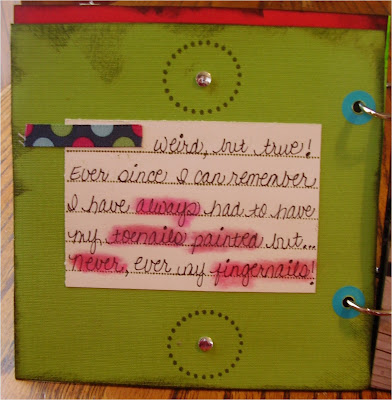 weird, but true!
Ever since I can remember
I have always had to have
my toenails painted but...
Never, ever my fingernails!